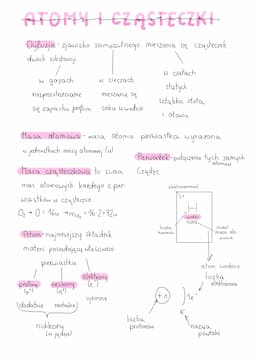 ATOMY I CZĄSTECZKI
Dyfuzja - zjawisko samoistnego mieszania się cząsteczek
dwóch substancji
w gazach
rozprzestrzenianie
się zapachu perfum
w cieczach
mieszanie się
soku w wodzie
w ciałach
stałych
sztabka złota
i ołowiu
Masa atomowa - masa atomu pierwiastka wyrażona
w jednostkach masy atomowej (u)
Pierwiastek - połączenie tych samych
atomów
Masa cząsteczkowa to suma
mas atomowych każdego z pier-
wiastków w cząsteczce
O₂ → O = 16u → mo₂ = 16·2 = 32u
Atom - najmniejszy składnik
materii posiadający właściwości
pierwiastka
protony
(p⁺)
neutrony
(n⁰)
elektrony
(e⁻)
ujemne
(dodatnie
neutralne)
nukleony
(w jądrze)
elektroujemność
2,1
H
wodór
liczba
masa ato-
mowa
atom wodoru
liczba
elektronów
+1
1e⁻
K
liczba
protonów
nazwa
powłoki